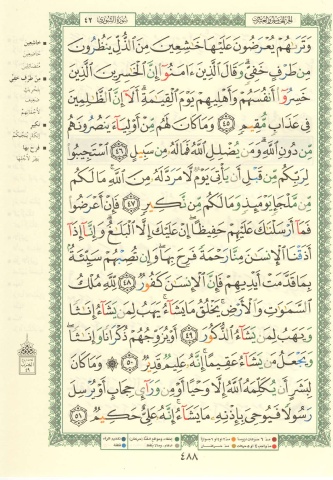 الجزء الخامس والعشرون
سورة الشورى ٤٢
وَتَرَىٰهُمْ يُعْرَضُونَ عَلَيْهَا خَٰشِعِينَ مِنَ ٱلذُّلِّ يَنظُرُونَ
مِن طَرْفٍ خَفِىٍّ وَقَالَ ٱلَّذِينَ ءَامَنُوٓا۟ إِنَّ ٱلْخَٰسِرِينَ ٱلَّذِينَ
خَسِرُوٓا۟ أَنفُسَهُمْ وَأَهْلِيهِمْ يَوْمَ ٱلْقِيَٰمَةِ أَلَآ إِنَّ ٱلظَّٰلِمِينَ
فِى عَذَابٍ مُّقِيمٍ ٤٥ وَمَا كَانَ لَهُم مِّنْ أَوْلِيَآءَ يَنصُرُونَهُم
مِّن دُونِ ٱللَّهِ وَمَن يُضْلِلِ ٱللَّهُ فَمَا لَهُۥ مِن سَبِيلٍ ٤٦ ٱسْتَجِيبُوا۟
لِرَبِّكُم مِّن قَبْلِ أَن يَأْتِىَ يَوْمٌ لَّا مَرَدَّ لَهُۥ مِنَ ٱللَّهِ مَا لَكُم
مِّن مَّلْجَإٍ يَوْمَئِذٍ وَمَا لَكُم مِّن نَّكِيرٍ ٤٧ فَإِنْ أَعْرَضُوا۟
فَمَآ أَرْسَلْنَٰكَ عَلَيْهِمْ حَفِيظًا إِنْ عَلَيْكَ إِلَّا ٱلْبَلَٰغُ وَإِنَّآ إِذَآ
أَذَقْنَا ٱلْإِنسَٰنَ مِنَّا رَحْمَةً فَرِحَ بِهَا وَإِن تُصِبْهُمْ سَيِّئَةٌۢ
بِمَا قَدَّمَتْ أَيْدِيهِمْ فَإِنَّ ٱلْإِنسَٰنَ كَفُورٌ ٤٨ لِّلَّهِ مُلْكُ
ٱلسَّمَٰوَٰتِ وَٱلْأَرْضِ يَخْلُقُ مَا يَشَآءُ يَهَبُ لِمَن يَشَآءُ إِنَٰثًا
وَيَهَبُ لِمَن يَشَآءُ ٱلذُّكُورَ ٤٩ أَوْ يُزَوِّجُهُمْ ذُكْرَانًا وَإِنَٰثًا
وَيَجْعَلُ مَن يَشَآءُ عَقِيمًا إِنَّهُۥ عَلِيمٌ قَدِيرٌ ٥٠ وَمَا كَانَ
لِبَشَرٍ أَن يُكَلِّمَهُ ٱللَّهُ إِلَّا وَحْيًا أَوْ مِن وَرَآئِ حِجَابٍ أَوْ يُرْسِلَ
رَسُولًا فَيُوحِىَ بِإِذْنِهِۦ مَا يَشَآءُ إِنَّهُۥ عَلِىٌّ حَكِيمٌ ٥١
خاشعين
من طرف خفي
نكير
فرح بها
٤٨٨